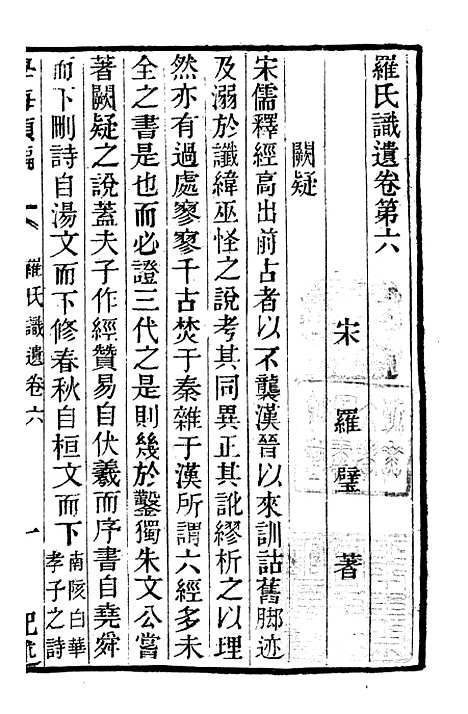 羅氏識遺卷第六
宋 羅璧 著
闕疑
宋儒釋經高出前古者以不襲漢晉以來訓詁舊脚迹
及溺於讖緯巫怪之說考其同異正其訛繆析之以理
然亦有過處寥寥千古焚于秦雜于漢所謂六經多未
全之書是也而必證三代之是則幾於鑿獨朱文公嘗
著闕疑之說蓋夫子作經贊易自伏羲而序書自堯舜
而下刪詩自湯文而下修春秋自桓文而下南陔白華
孝子之詩
羅氏識遺卷六
一